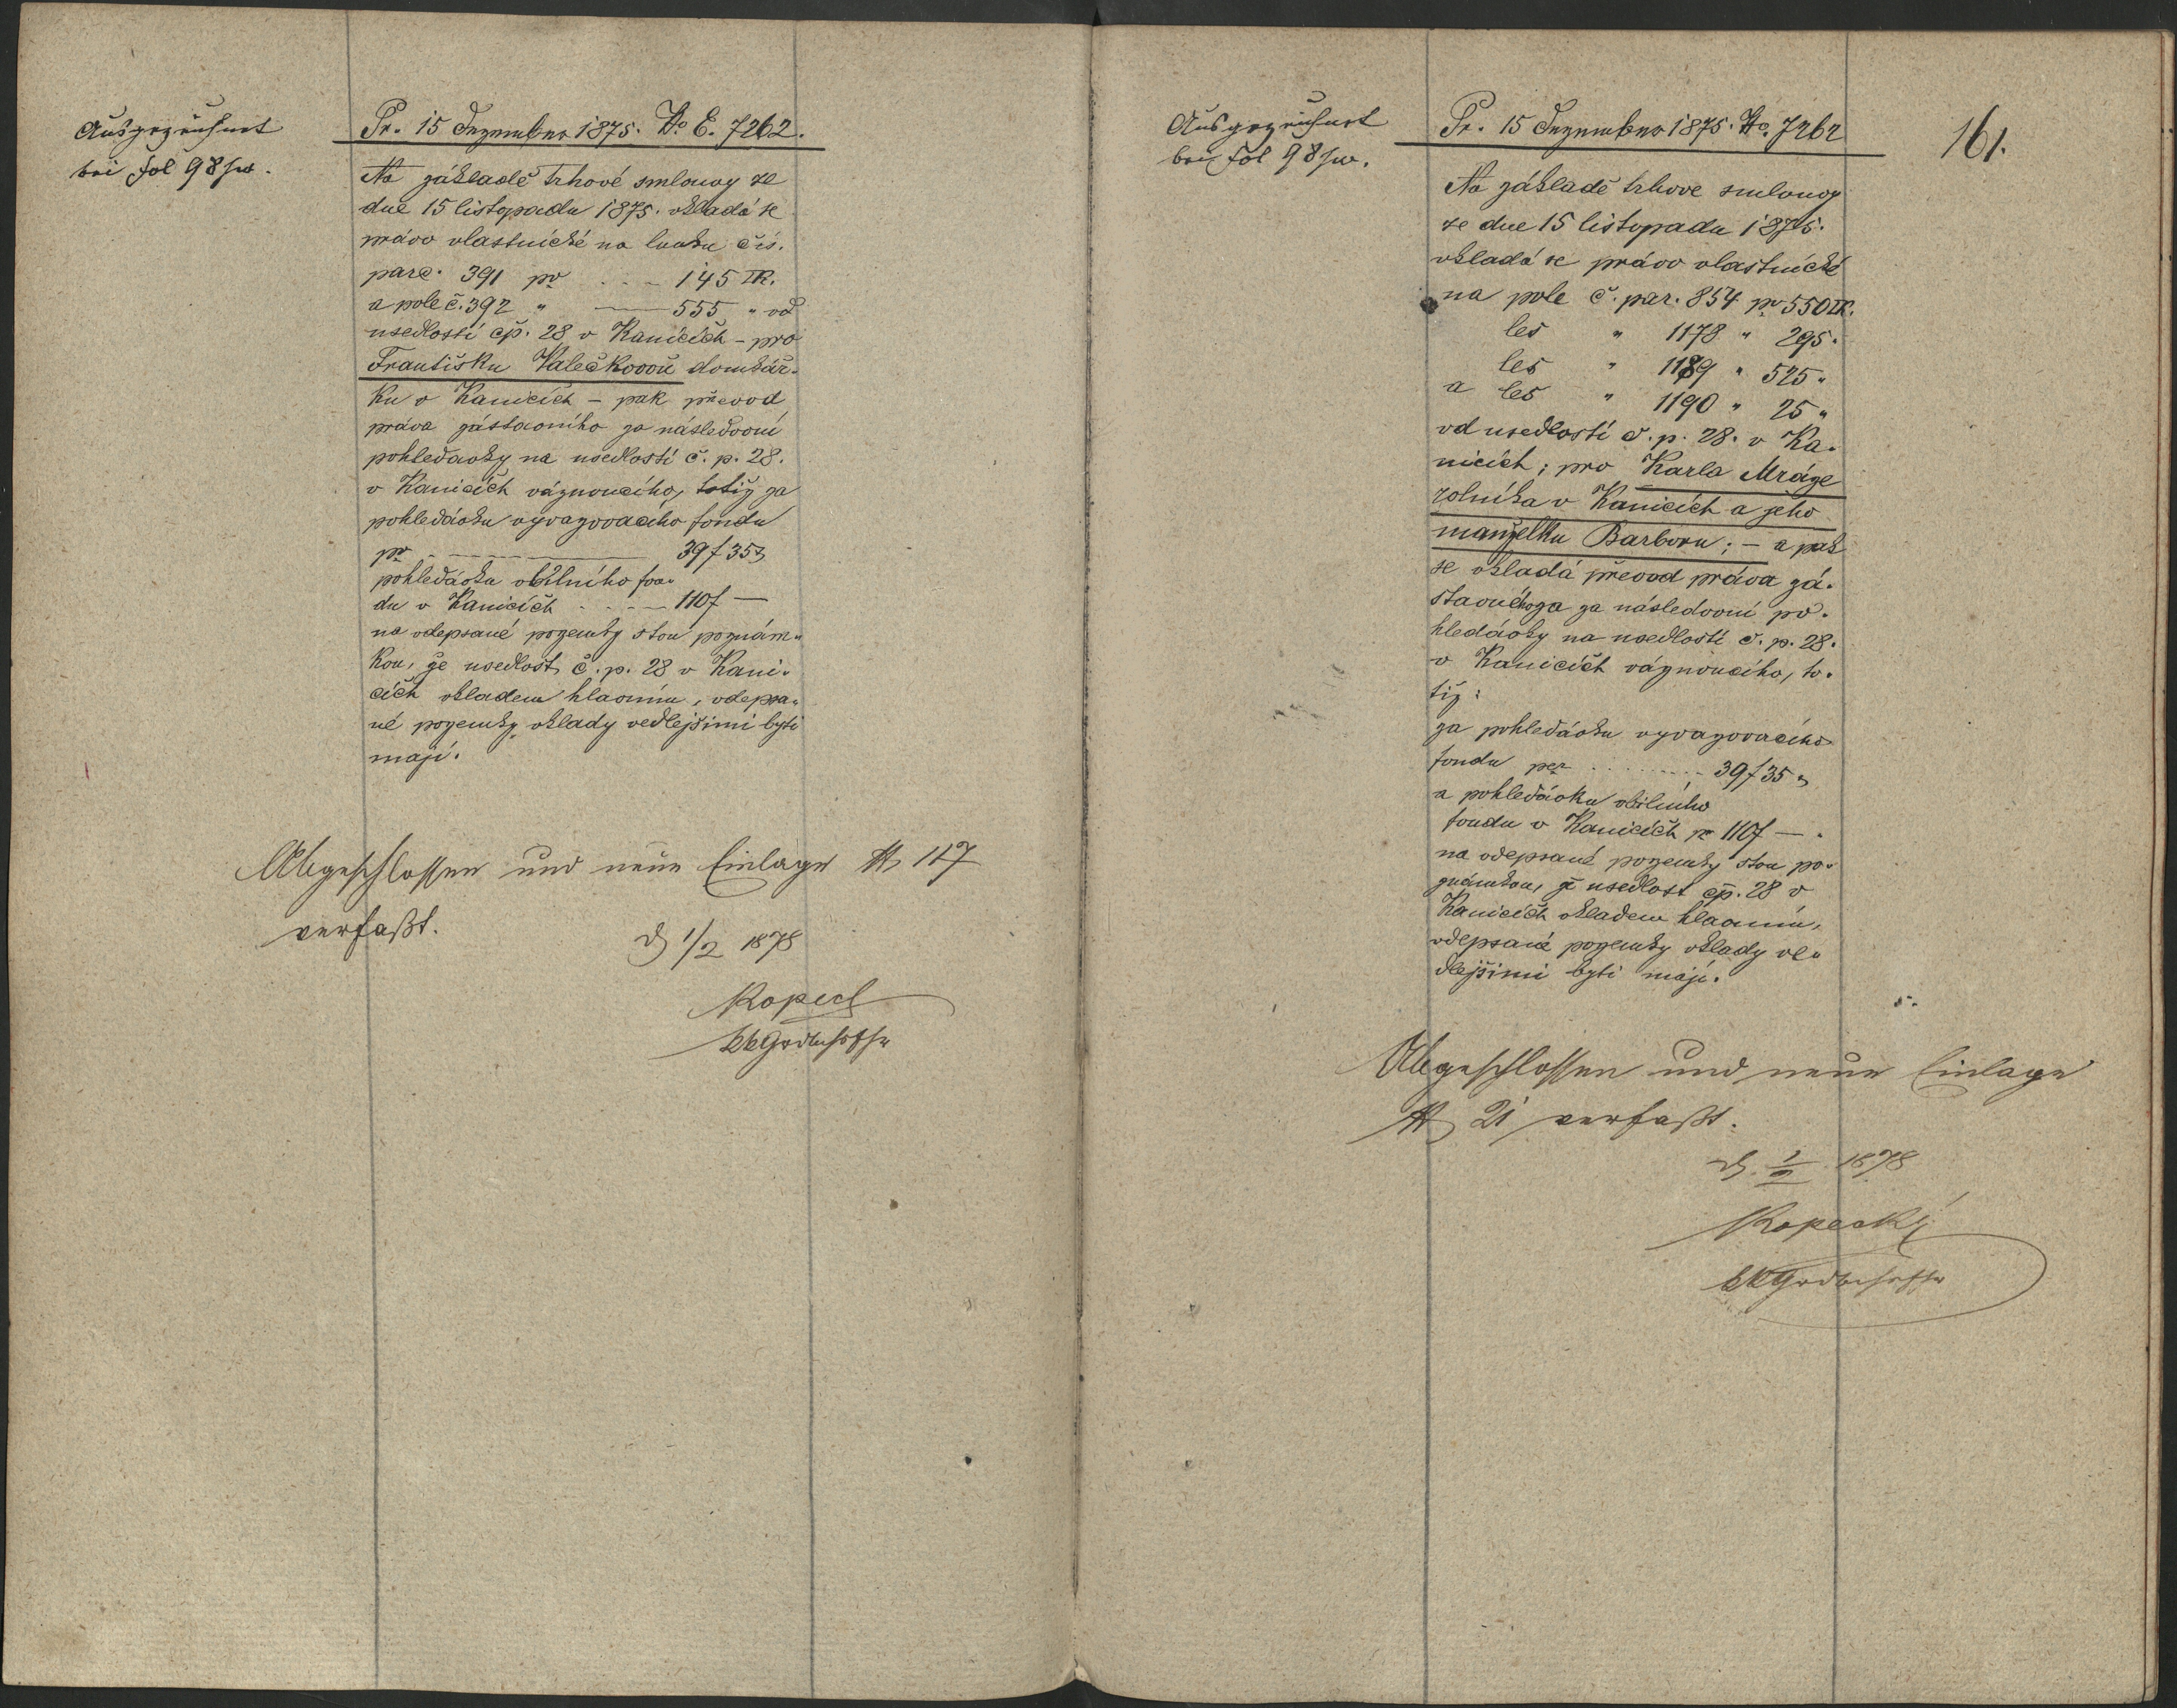 Ausgezeichnet
bei Fol 98
Pr. 15 Dezember 1875. No E. 7262.
Na základě trhové smlouvy ze
dne 15 listopadu 1875. vkladá se
právo vlastnické na louku čís.
parc. 391 pr ... 145 □K.
a pole č. 392 " — 555 " od
usedlosti čp. 28 v Kanicích - pro
Františku Valečkovou domkář-
ku v Kanicích - pak převod
práva zástavního za následovní
pohledavky na usedlosti č. p. 28.
v Kanicích váznoucího, totiž za
pohledávku vyvazovacího fondu
pr — 39 f 35
pohledávku obilního fon-
du v Kanicích .... 110 f —
na odepsané pozemky s tou poznám-
kou, že usedlost č. p. 28 v Kani-
cích vkladem hlavním, odepsa-
né pozemky vklady vedlejšími byti
mají.
Abgeschlossen und neue Einlage N 117
verfaßt.
d 1/2 1878
Kopecky
Ausgezeichnet
bei Fol 98
Pr. 15 Dezember 1875. No. 7262
161.
Na základě trhove smlouvy
ze dne 15 listopadu 1875.
vkladá se právo vlastnické
na pole č. par. 854 pr 550 □K.
les " 1178 " 295.
les " 1189 " 525 "
a les " 1190 " 25 "
od usedlosti č. p. 28. v Ka-
nicích; pro Karla Mráze
rolníka v Kanicích a jeho
manželku Barboru; - a pak
se vkladá převod práva zá-
stavního za následovní po-
hledávky na usedlosti č. p. 28.
v Kanicích váznoucího, to-
tiž:
za pohledávku vyvazovacího
fondu per ........ 39 f 35
a pohledávku obilního
fondu v Kanicích pr 110 f —.
na odepsané pozemky s tou po-
známkou, že usedlost čp. 28 v
Kanicích vkladem hlavním,
odepsané pozemky vklady ve-
dlejšími byti mají.
Abgeschlossen und neue Einlage
N 21 verfaßt.
d. 1/2 1878
Kopecký